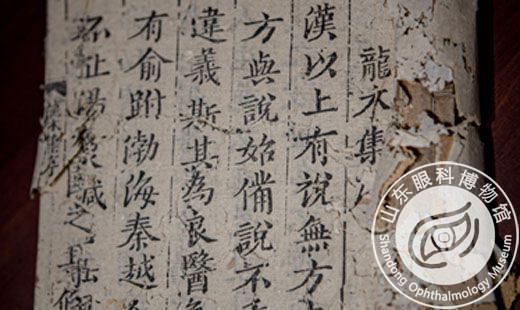 龍木集
漢以上有說無方
方與說始備說不
違義斯其為良醫
有俞跗渤海秦越
止湯熨鍼之
山东眼科博物馆
Shandong Ophthalmology Museum